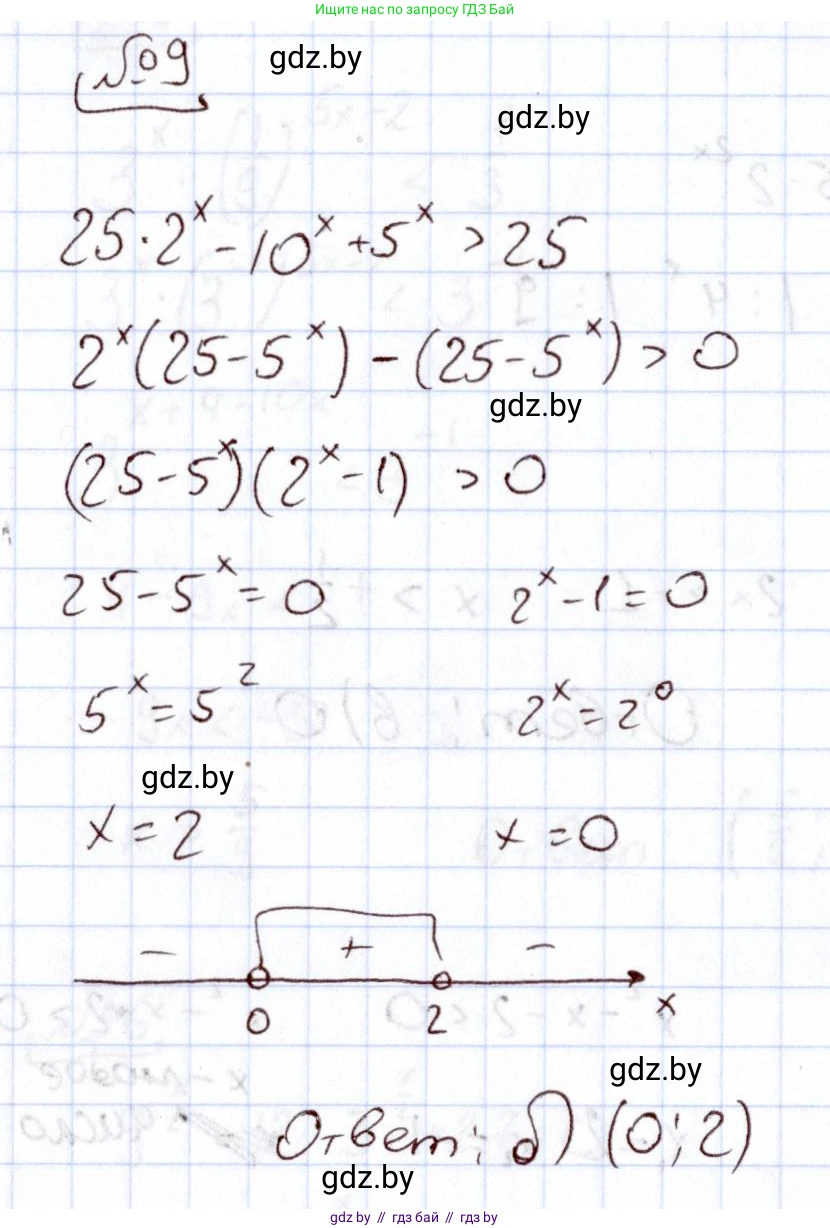 Ищите нас по запросу ГДЗ Бай
№9 gdz.by
gdz.by
25·2^x - 10^x + 5^x > 25
2^x(25-5^x) - (25-5^x) > 0
gdz.by
(25-5^x)(2^x-1) > 0
25-5^x=0 2^x-1=0
5^x=5^2 2^x=2^0
gdz.by
x=2 x=0
- + -
0 2 x
gdz.by
Ответ: б) (0;2)
gdz.by
gdz.by // гдз бай // gdz by